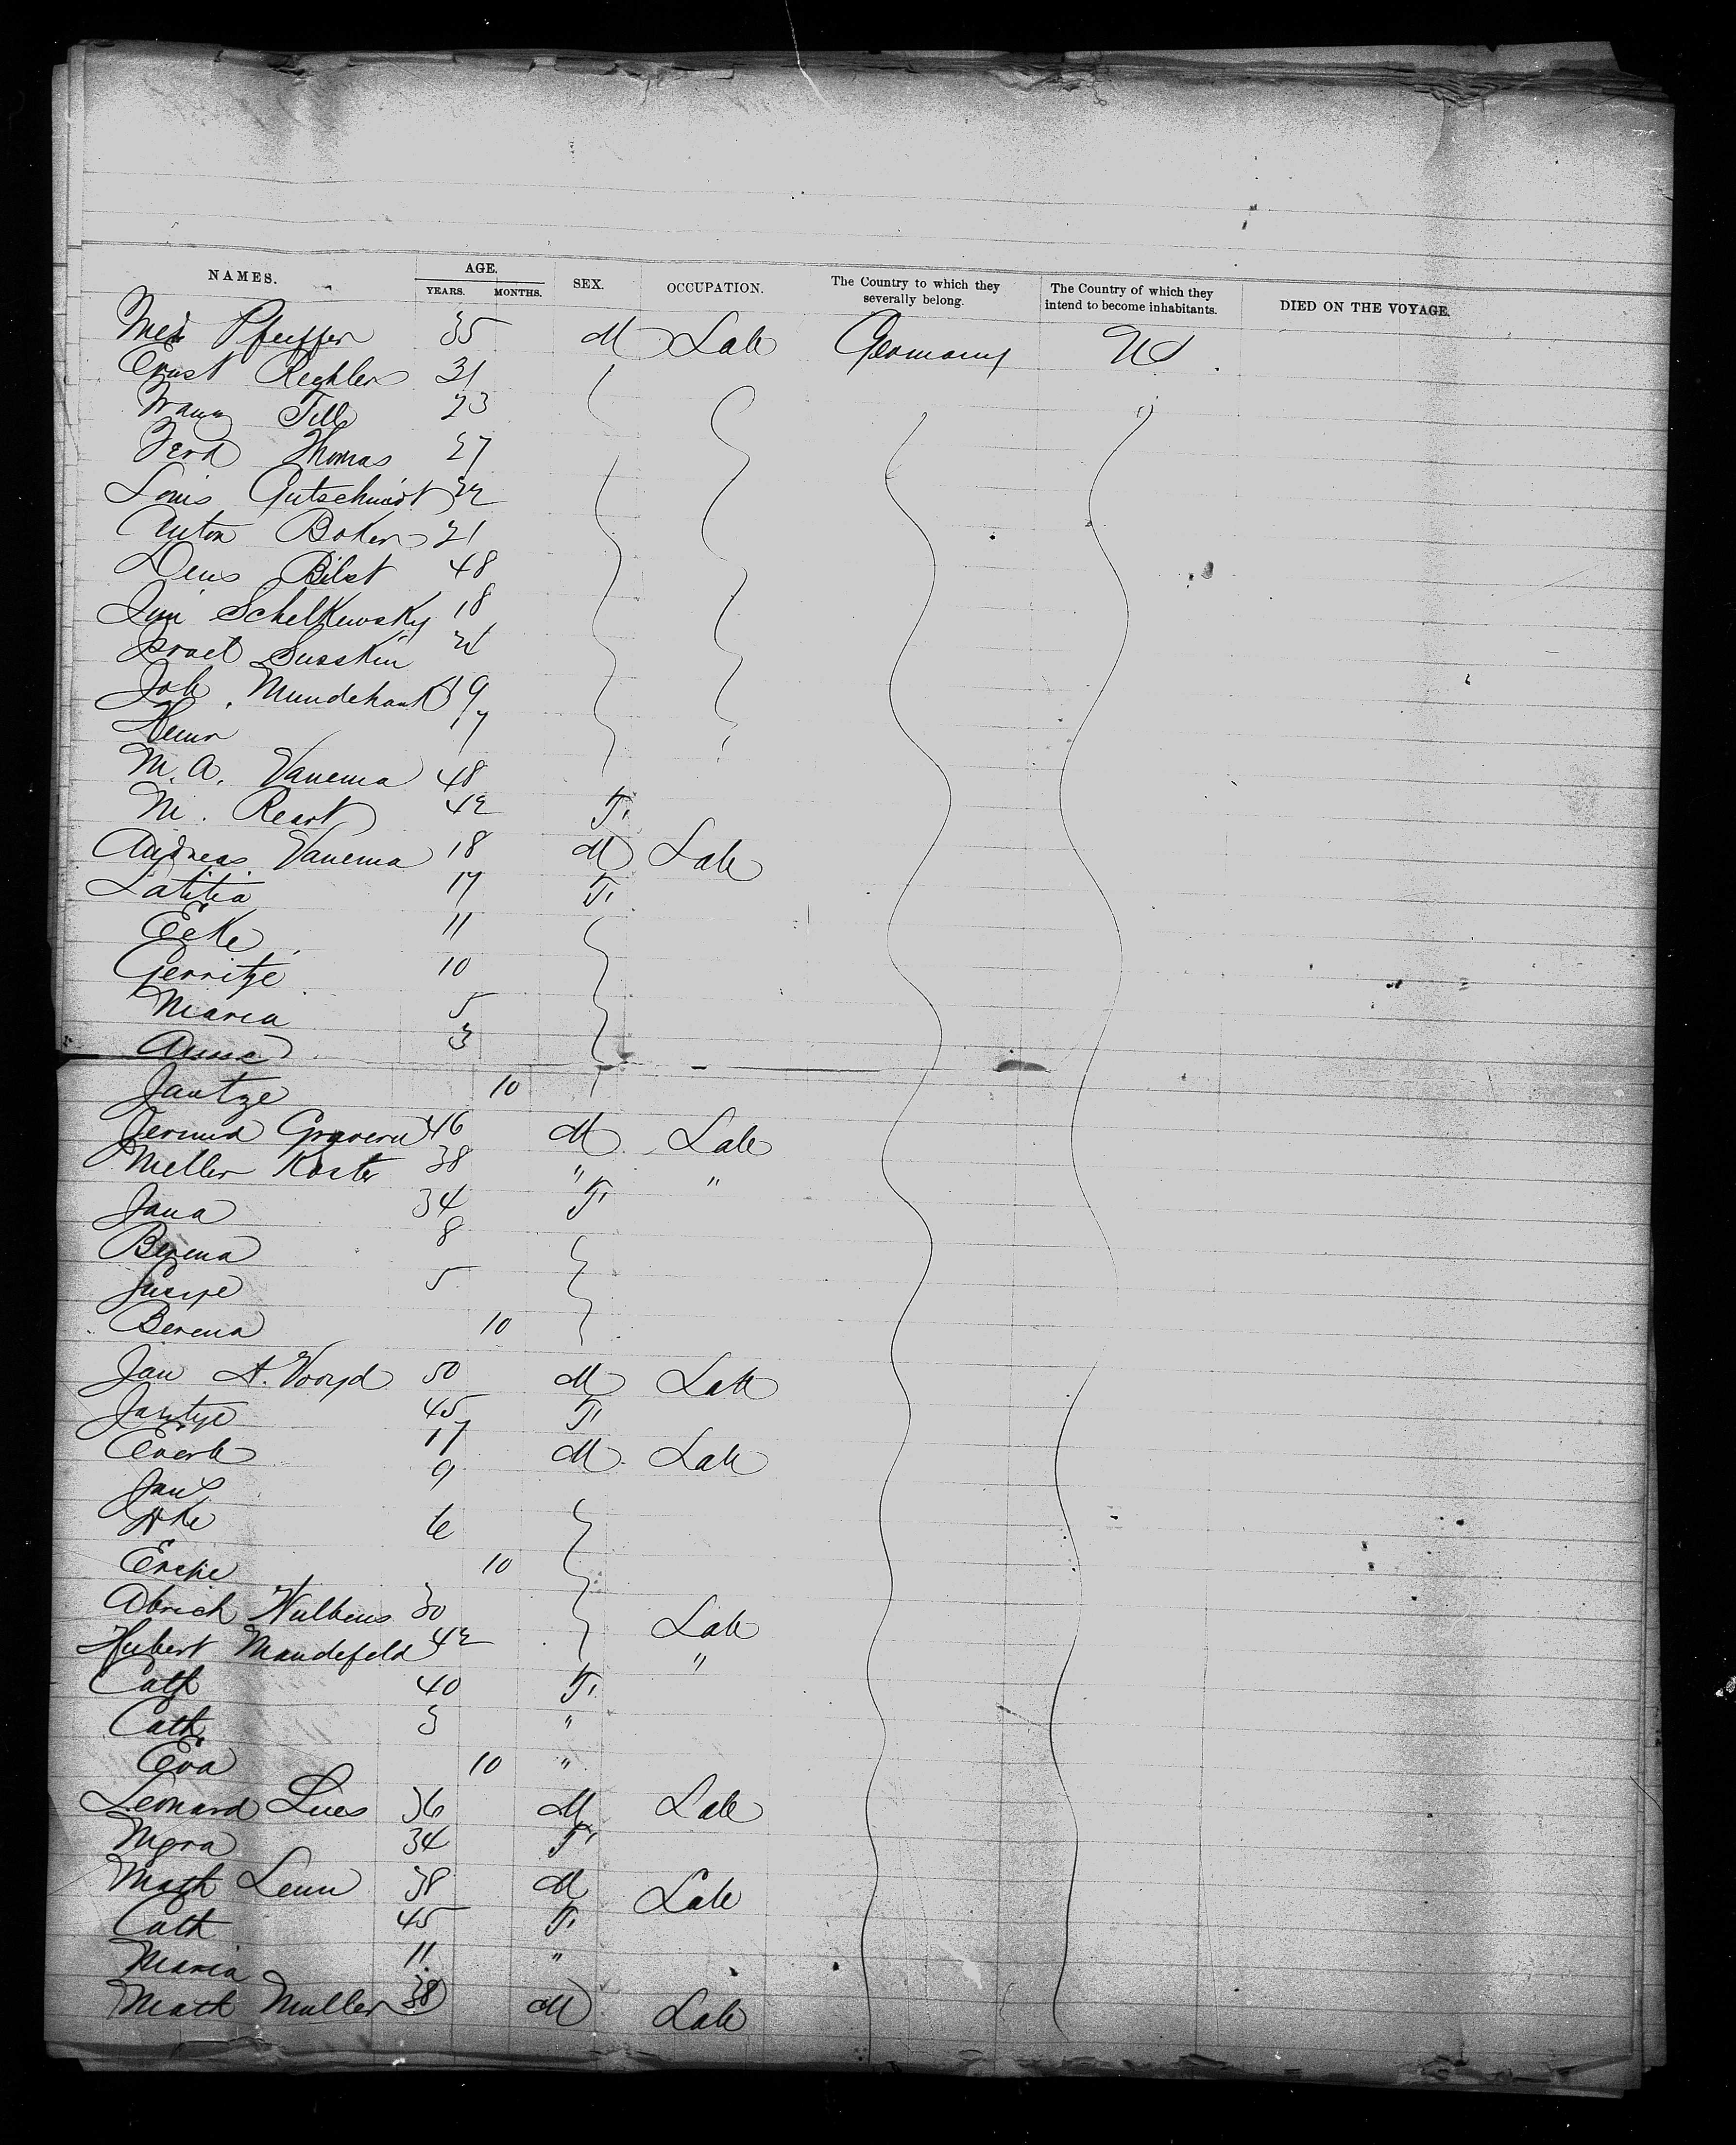 NAMES. AGE. YEARS. MONTHS. SEX. OCCUPATION. The Country to which they severally belong. The Country of which they intend to become inhabitants. DIED ON THE VOYAGE.
Pfeiffer 35 M Lab Germany US
Ernst Reghler 31
Till 23
Ferd Thomas 27
Louis Gutschmidt 32
Anton Boker 21
Bilst 48
Schelkewsky 18
Israel Susskin 24
Joh. 19
Henr 17
M. A. Vanema 48
M. Reart 42 F.
Andreas Vanema 18 M Lab
Latitia 17 F.
Eeke 11
Gerritze 10
Maria 5
Anna 3
Jantze 10
46 M Lab
Meller Koster 38 " "
Jana 34 F.
Berena 8
5
Berena 10
Jan A. Vooyd 50 M Lab
Jantye 45 F
Everh 17 M Lab
Jan 9
6
10
Wulbens 30 Lab
Hubert Mandefeld 42 "
Cath 40 F.
Cath 3 "
Eva 10 "
Leonard Lues 36 M Lab
34 F
Math Leun 38 M Lab
Cath 45 F.
Maria 11 "
Math Muller 38 M Lab